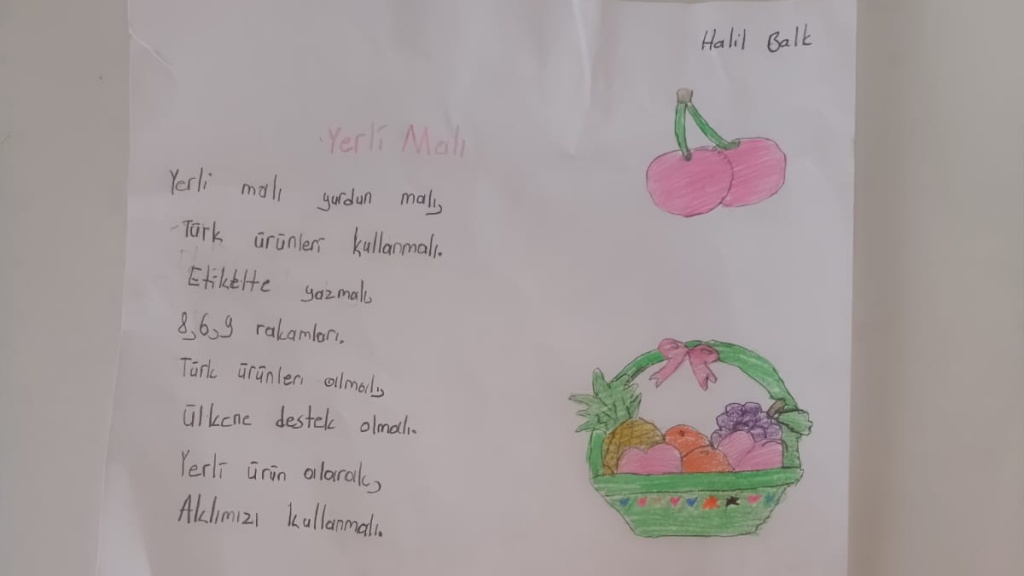 Halil Balk
Yerli Malı
Yerli malı yurdun malı,
Türk ürünleri kullanmalı.
Etikette yazmalı,
8,6,9 rakamları.
Türk ürünleri almalı,
Ülkene destek olmalı.
Yerli ürün alarak,
Aklımızı kullanmalı.